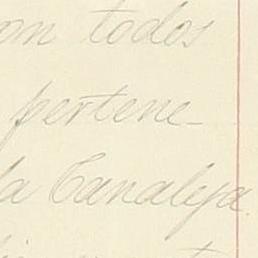 on todos
pertene-
la Canaleja.